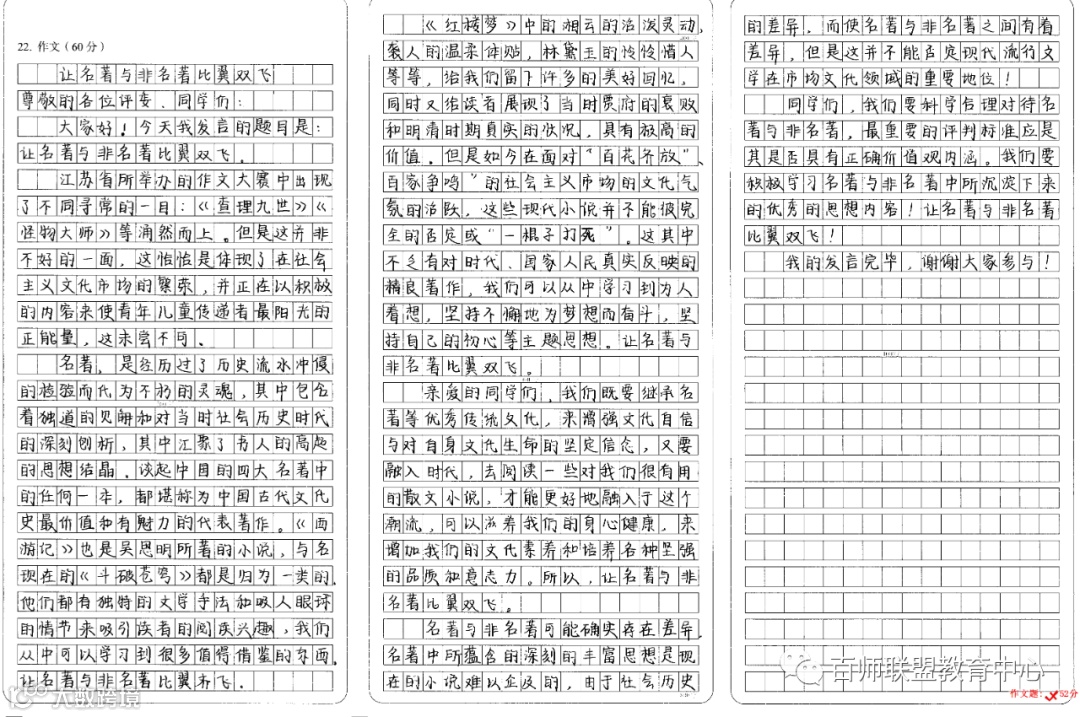 22. 作文(60分)
让名著与非名著比翼双飞
尊敬的各位评委、同学们:
大家好!今天我发言的题目是:
让名著与非名著比翼双飞。
江苏省所举办的作文大赛中出现
了不同寻常的一目:《查理九世》《
怪物大师》等涌然而上。但是这并非
不好的一面,这恰恰是体现了在社会
主义文化市场的繁荣,并正在以积放
的内容来使青年儿童传递者最阳光的
正能量,这未尝不可。
名著,是经历过了历史流水冲侵
的检验而代为不朽的灵魂,其中包含
着独道的见解和对当时社会历史时代
的深刻刨析,其中汇聚了有人的高超
的思想结晶。谈起中国的四大名著中
的任何一本,都堪称为中国古代文化
史最价值和有魅力的代表著作。《西
游记》也是吴思明所著的小说,与名
现在的《斗破苍穹》都是归为一类的.
他们都有独特的文学手法和吸人眼球
的情节来吸引读者的阅读兴趣,我们
从中可以学习到很多值得借鉴的东西.
让名著与非名著比翼齐飞.
《红楼梦》中的湘云的活泼灵动,
袭人的温柔体贴,林黛玉的怜怜惜人
等等,给我们留下许多的美好回忆,
同时又给读者展现了当时贾府的衰败
和明清时期真实的状况,具有极高的
价值。但是如今在面对“百花齐放”、
百家争鸣”的社会主义市场的文化气
氛的活跃,这些现代小说并不能彼完
全的否定或“一棍子打死”。这其中
不乏有对时代、国家人民真实反映的
精良著作,我们可以从中学习到为人
着想,坚持不懈地为梦想而奋斗,坚
持自己的初心等主题思想。让名著与
非名著比翼双飞。
亲爱的同学们,我们既要继承名
著等优秀传统文化,来增强文化自信
与对自身文化生命的坚定信念,又要
融入时代,去阅读一些对我们很有用
的散文小说,才能更好地融入于这个
潮流,可以滋养我们的身心健康,来
增加我们的文化素养和培养各种坚强
的品质和意志力。所以,让名著与非
名著比翼双飞。
名著与非名著可能确实存在差异,
名著中所蕴含的深刻的丰富思想是现
在的小说难以企及的,由于社会历史
的差异,而使名著与非名著之间有着
差异,但是这并不能否定现代流行文
学在市场文化领域的重要地位!
同学们,我们要科学合理对待名
著与非名著,最重要的评判标准应是
其是否具有正确价值观内涵。我们要
积极学习名著与非名著中所沉淀下来
的优秀的思想内容!让名著与非名著
比翼双飞!
我的发言完毕,谢谢大家参与!
百师联盟教育中心
作文题: 52分
大数跨境